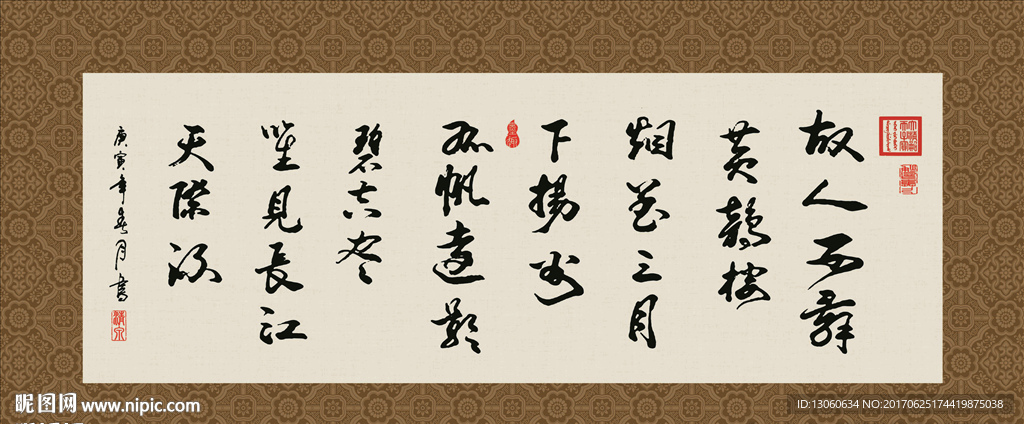 故人西辭
黄鶴楼
烟花三月
下揚州
孤帆遠影
碧空尽
唯見長江
天際流
庚寅年春月書
昵图网 www.nipic.com
ID:13060634 NO:20170625174419875038